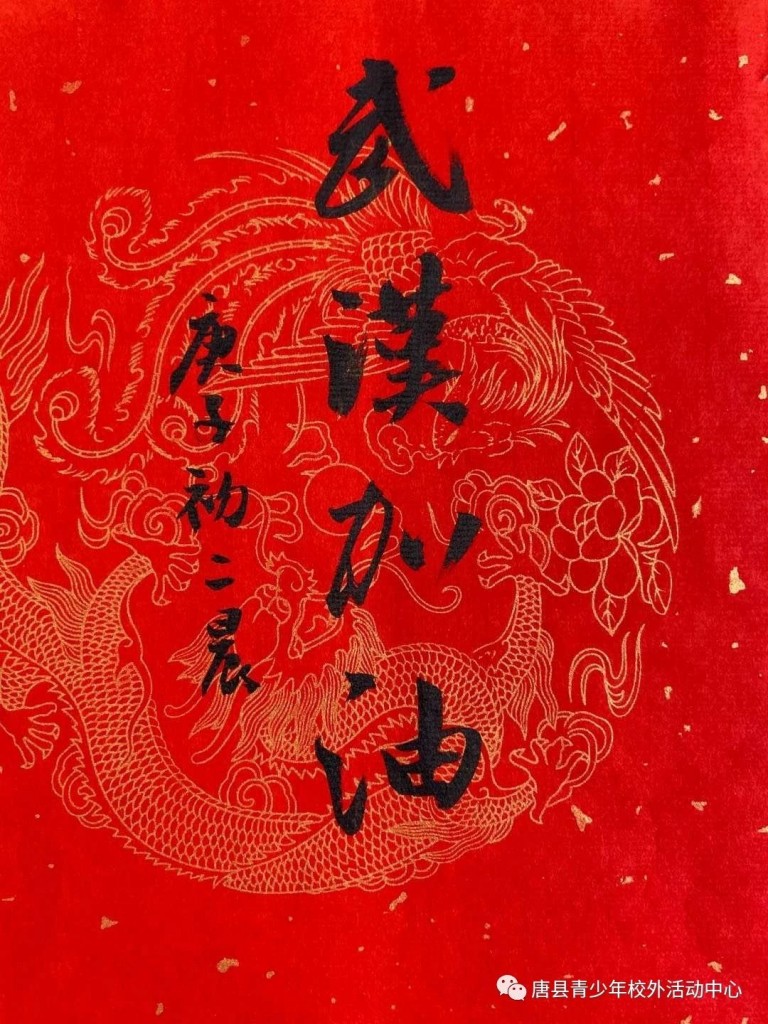 武漢加油
庚子初二晨
唐县青少年校外活动中心